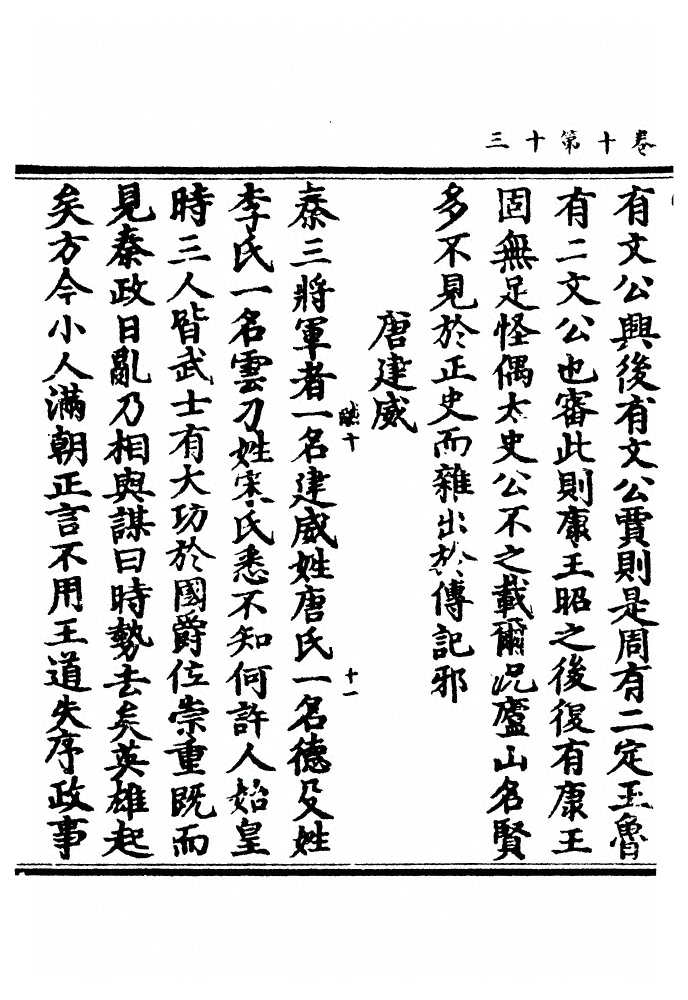 卷十第十三
有文公興後有文公賈則是周有二定王魯
有二文公也審此則康王昭之後復有康王
固無足怪偶太史公不之載爾況廬山名賢
多不見於正史而雜出於傳記邪
唐建威
十
十一
秦三將軍者一名建威姓唐氏一名德殳姓
李氏一名雲刀姓宋氏悉不知何許人始皇
時三人皆武士有大功於國爵位崇重既而
見秦政日亂乃相與謀曰時勢去矣英雄起
矣方今小人滿朝正言不用王道失序政事